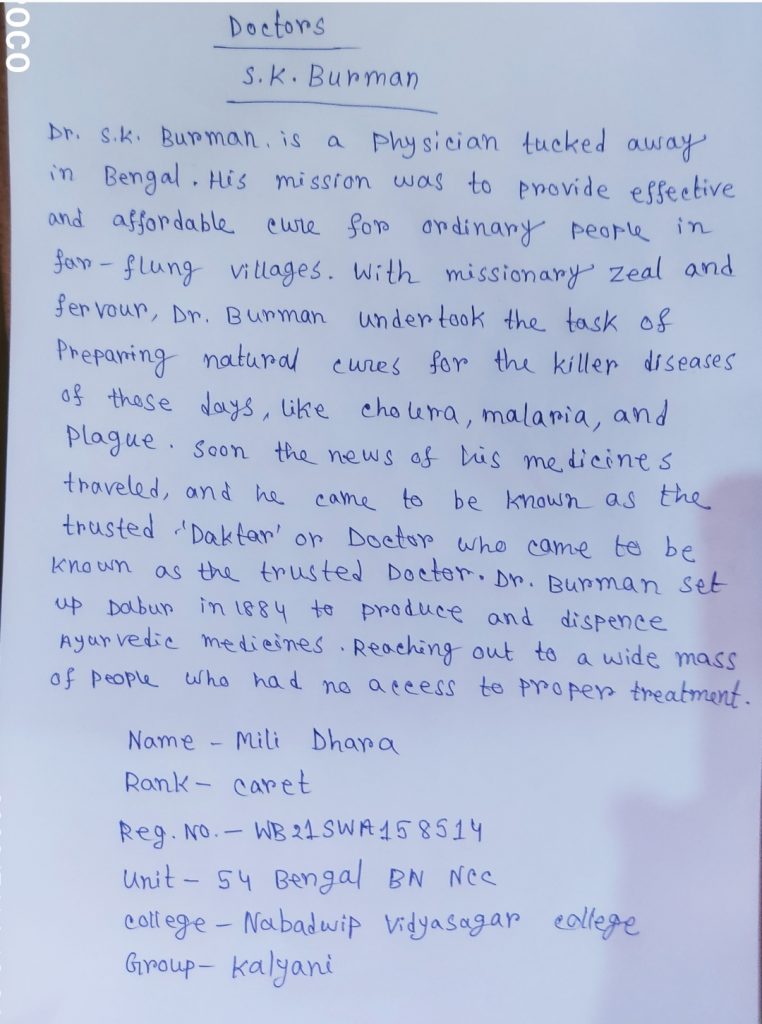 POCO
Doctors
S.K. Burman
Dr. S.K. Burman. is a Physician tucked away
in Bengal. His mission was to provide effective
and affordable cure for ordinary people in
far-flung villages. With missionary zeal and
fervour, Dr. Burman undertook the task of
Preparing natural cures for the killer diseases
of those days, like cholera, malaria, and
Plague. Soon the news of his medicines
traveled, and he came to be known as the
trusted 'Daktar' or Doctor who came to be
known as the trusted Doctor. Dr. Burman set
up Dabur in 1884 to produce and dispence
Ayurvedic medicines. Reaching out to a wide mass
of people who had no access to proper treatment.
Name - Mili Dhara
Rank - caret
Reg. No. - WB21SWA158514
Unit - 54 Bengal BN NCC
college - Nabadwip Vidyasagar college
Group - Kalyani